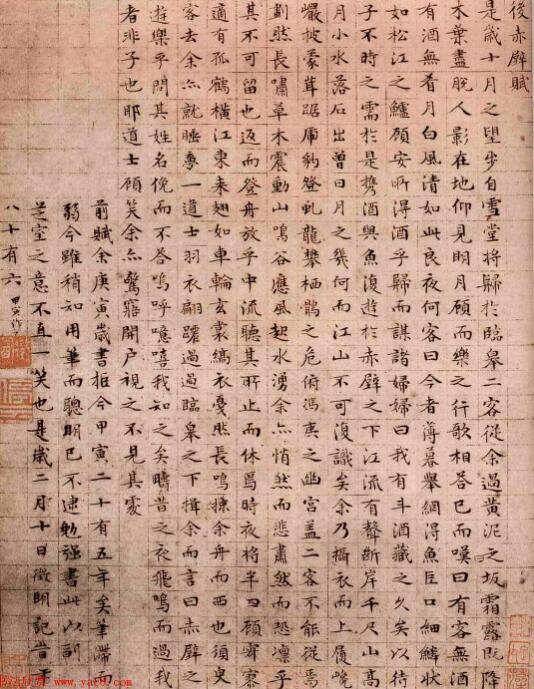 後赤壁賦
是歲十月之望步自雪堂將歸於臨皋二客從余過黃泥之坂霜露既降
木葉盡脫人影在地仰見明月顧而樂之行歌相答已而嘆曰有客無酒
有酒無肴月白風清如此良夜何客曰今者薄暮舉網得魚巨口細鱗狀
如松江之鱸顧安所得酒乎歸而謀諸婦婦曰我有斗酒藏之久矣以待
子不時之需於是攜酒與魚復遊於赤壁之下江流有聲斷岸千尺山高
月小水落石出曾日月之幾何而江山不可復識矣余乃攝衣而上履巉
巖披蒙茸踞虎豹登虬龍攀栖鶻之危俯馮夷之幽宮盖二客不能從焉
劃然長嘯草木震動山鳴谷應風起水湧余亦悄然而悲肅然而恐凜乎
其不可留也返而登舟放乎中流聽其所止而休焉時夜將半四顧寂寥
適有孤鶴橫江東來翅如車輪玄裳縞衣戛然長鳴掠余舟而西也須臾
客去余亦就睡夢一道士羽衣翩躚過過臨皋之下揖余而言曰赤壁之
遊樂乎問其姓名俛而不答嗚呼噫嘻我知之矣疇昔之夜飛鳴而過我
者非子也耶道士顧笑余亦驚寤開戶視之不見其處
前賦余庚寅歲書距今甲寅二十有五年矣筆滯而
弱今雖稍知用筆而聰明已不逮勉強書此以副
芝室之意不直一笑也是歲二月十日徵明記昔年
八十有六
甲寅作